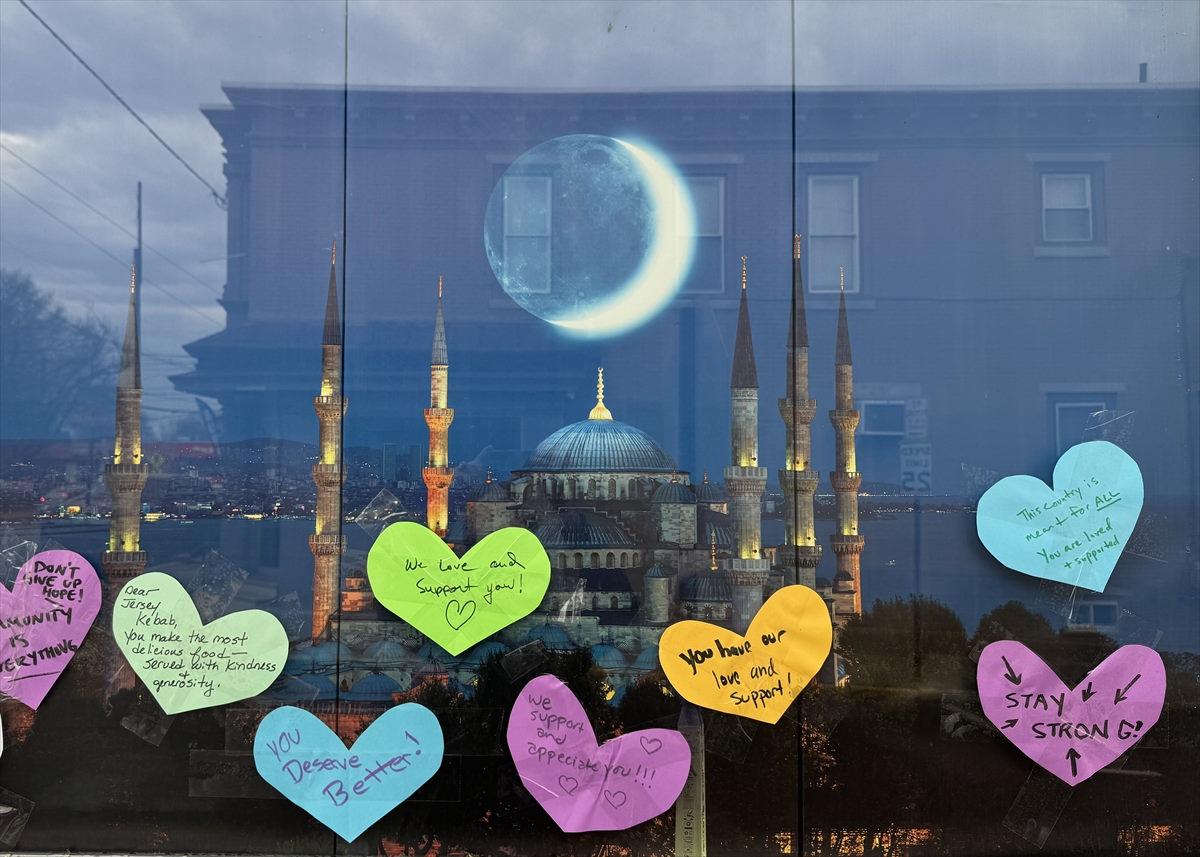 DON'T
GIVE UP
HOPE!
IS
Dear
Jersey
Kebab,
you make the most
delicious food—
served with kindness
+
generosity.
We love and
Support you!
YOU
Deserve
Better!
We
support
and
appeciate you!!!
you have our
love and
support!
This country is
meant for ALL
You are loved
+ supported
STAY
STRONG!
SPEED
LIMIT
25